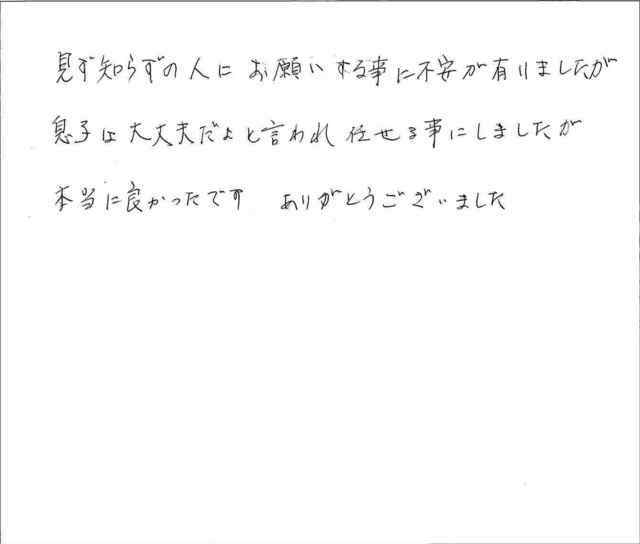 見ず知らずの人に お願いする事に不安が有りましたが
息子は大丈夫だよと言われ 任せる事にしましたが
本当に良かったです ありがとうございました